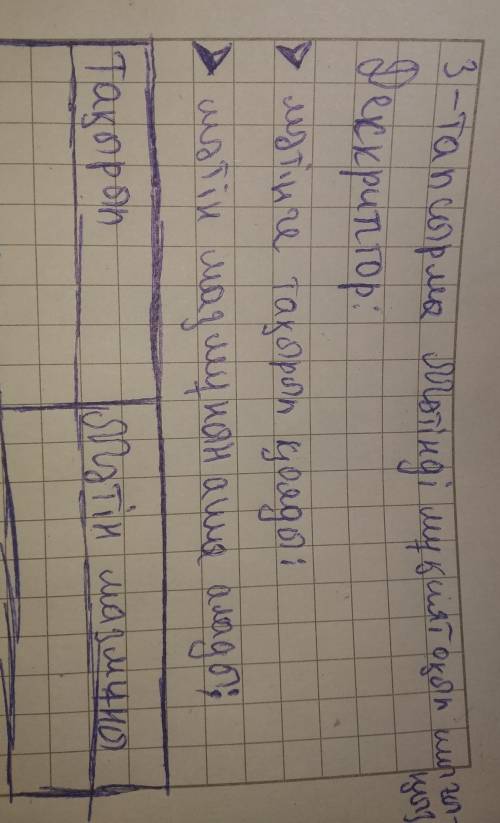 3-тапсырма Мәтінді мұқият оқып шығы-
ңыз
Дескриптор:
➤ мәтінге тақырып қояды;
➤ мәтін мазмұнын аша алады;
Тақырып
Мәтін мазмұны